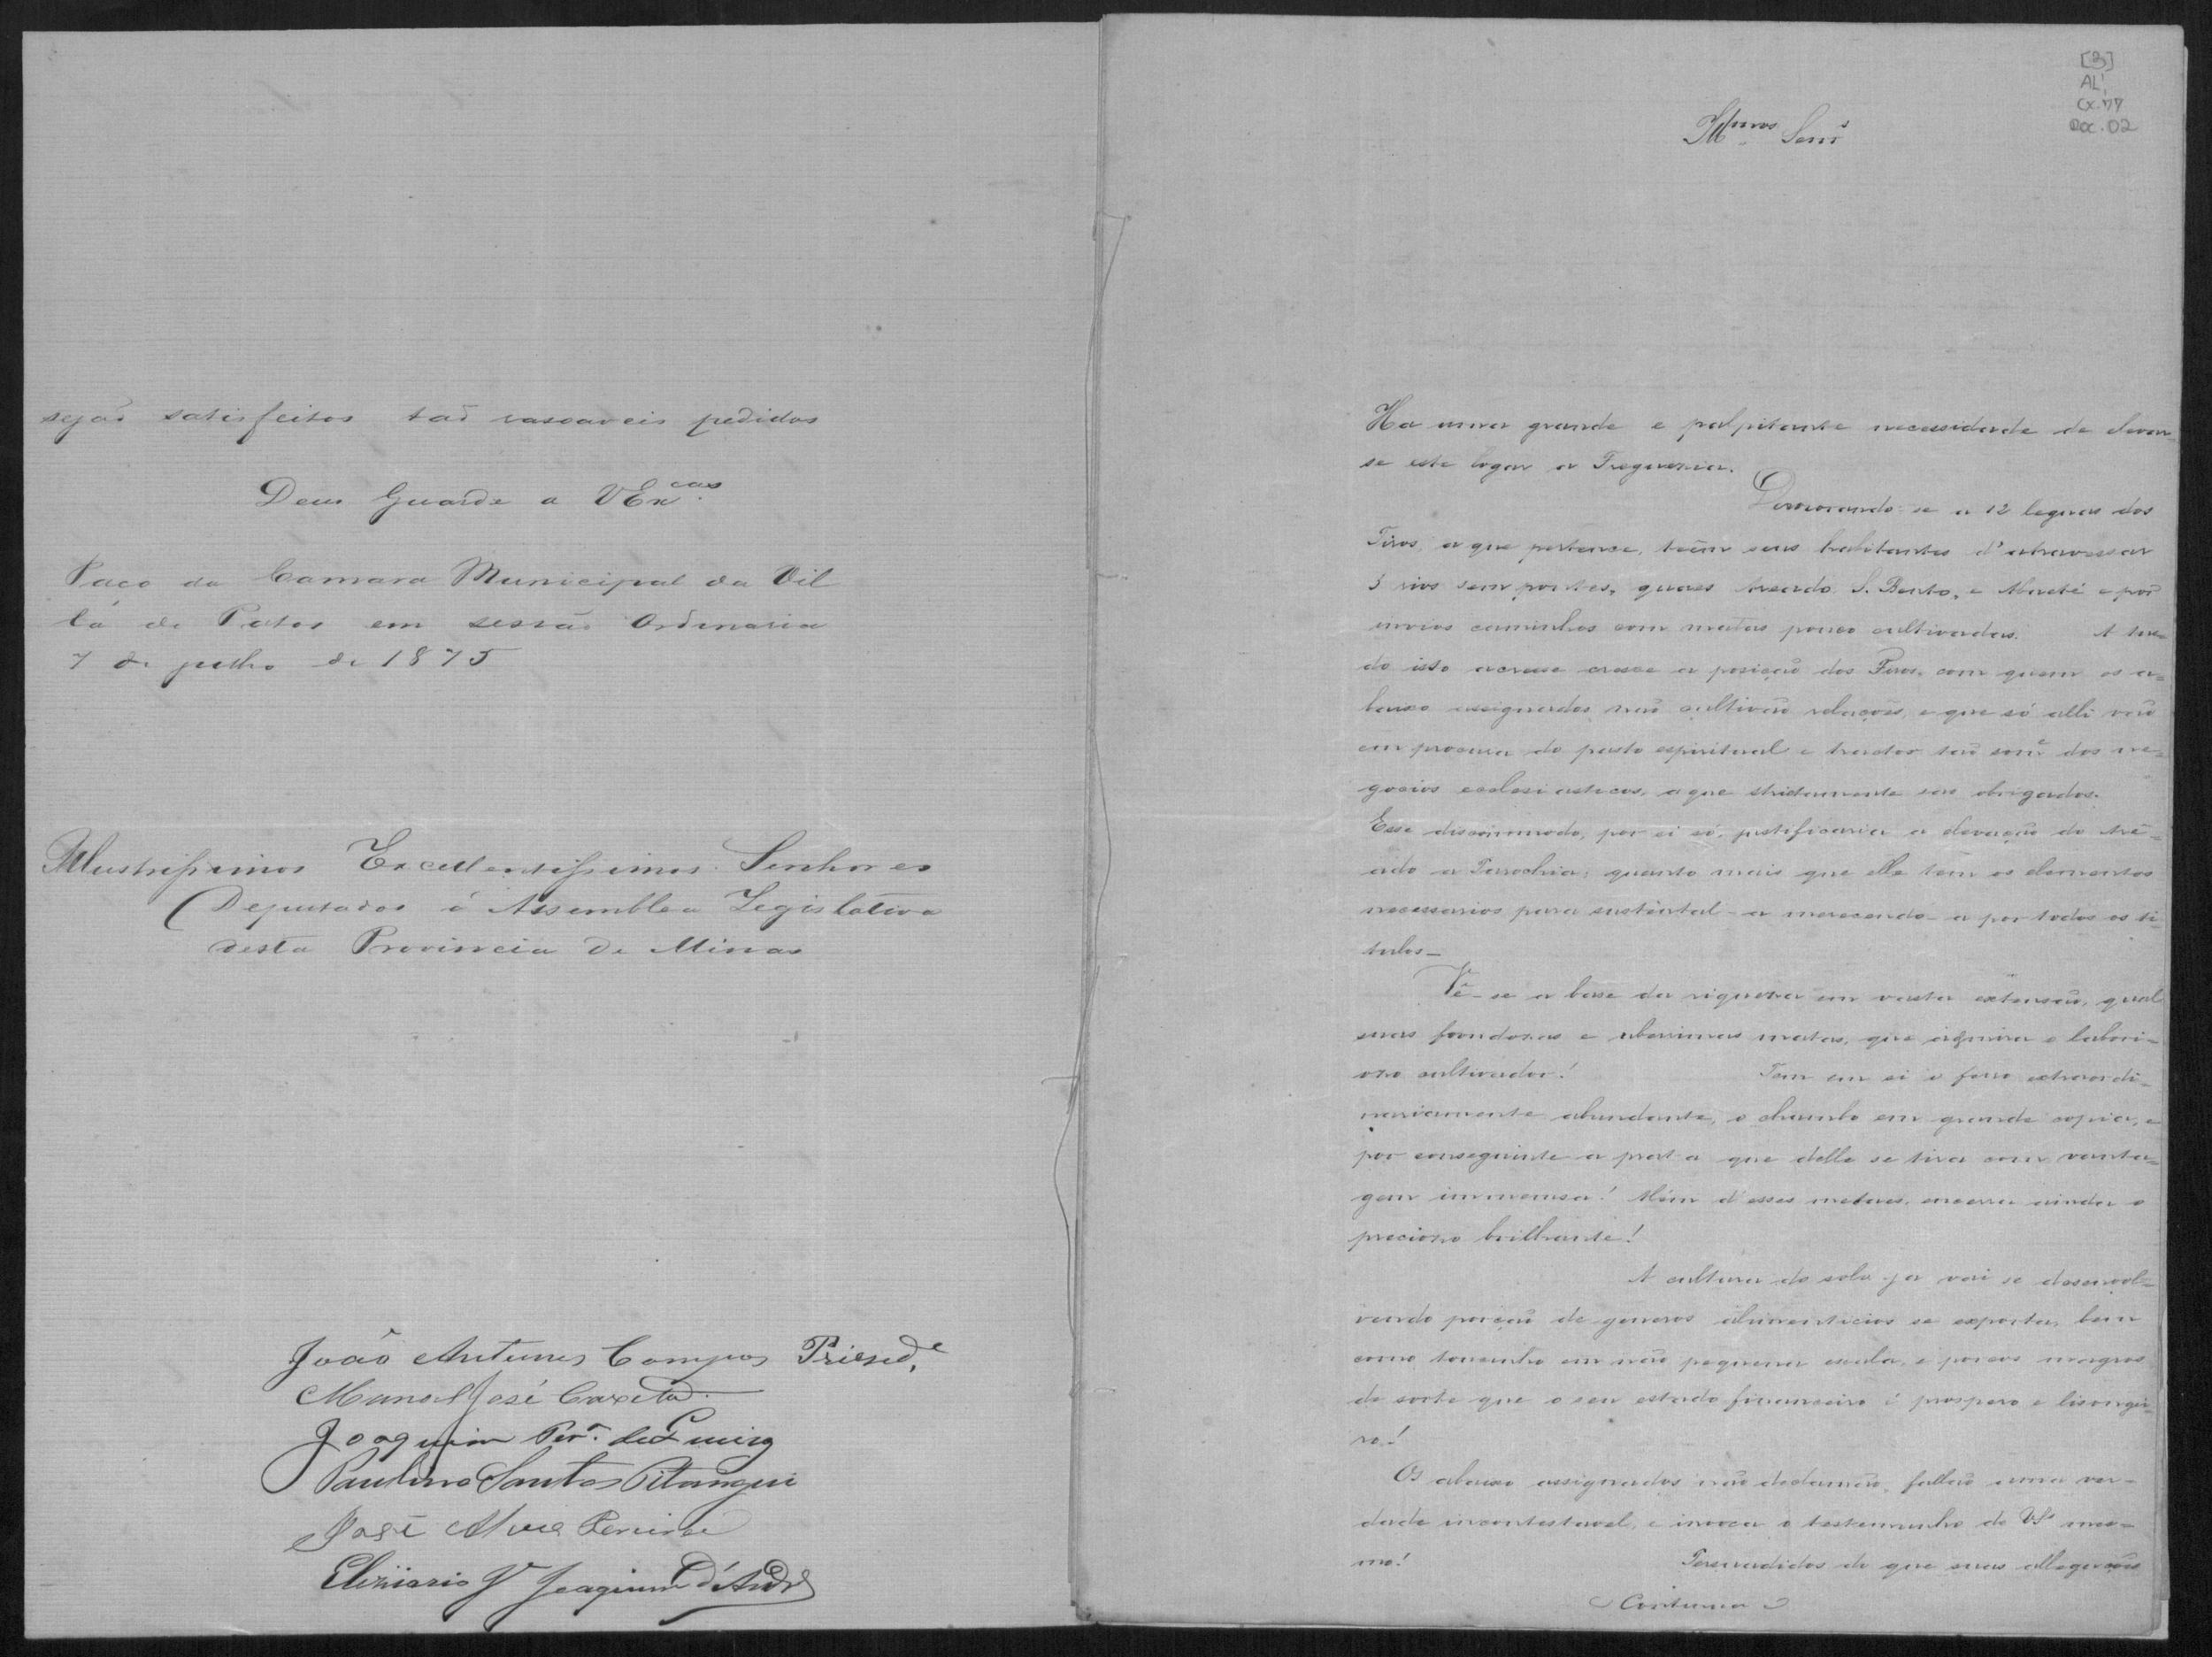 sejão satisfeitos tão rasoaveis pedidos
Deus Guarde a VEx.cas
Paço da Camara Municipal da Vil
la de Patos em sessão Ordinaria
7 de julho de 1875
Illustrissimos Excellentissimos Senhores
Deputados á Assemblea Legislativa
desta Provincia de Minas
João Antunes Campos Presid.e
Manoel José Caxeta
Joaquim Per.a de
Paulino Santos Pitangui
José Alves Pereira
Joaquim d'
[3]
AL1
Cx.77
Doc. 02
Ill.mos Senr.s
Ha uma grande e palpitante necessidade de elevar-
se este logar a Freguezia.
Demorando-se a 12 leguas dos
Tiros, a que pertence, teêm seus habitantes d'atravessar
3 rios sem pontes, quaes S. Bento, e Abaeté e por
invios caminhos com matas pouco cultivadas. A tu-
do isto accresce a posição dos Tiros, com quem os a=
baixo assignados não cultivão relações, e que só alli vão
em procura do pasto espiritual e tractar tão som.e dos ne=
gocios ecclesiasticos, a que strictamente sao obrigados.
Esse discommodo, por si só, justificaria a elevação do
a Parochia; quanto mais que elle tem os elementos
necessarios para sustental-a merecendo-a por todos os ti-
tulos_
Vê-se a base da riqueza em vasta extensão, qual
suas frondozas e uberrimas matas, que o labori=
ozo cultivador! Tem em si o ferro extraordi=
nariamente abundante, o chumbo em grande copia, e
por conseguinte a prata que delle se tira com vanta=
gem immensa! Além d'esses metaes, encerra ainda o
preciozo brilhante!
A cultura do solo ja vai se desenvol=
vendo porção de generos alimenticios se exporta, bem
como toucinho em não pequena escala, e porcos magros
de sorte que o seu estado financeiro é prospero e lisongei=
ro!
Os abaixo assignados não declamão, fallão uma ver=
dade incontestavel, e invoca o testemunho de VS.s mes=
mo! Persuadidos de que suas allegações
Continua